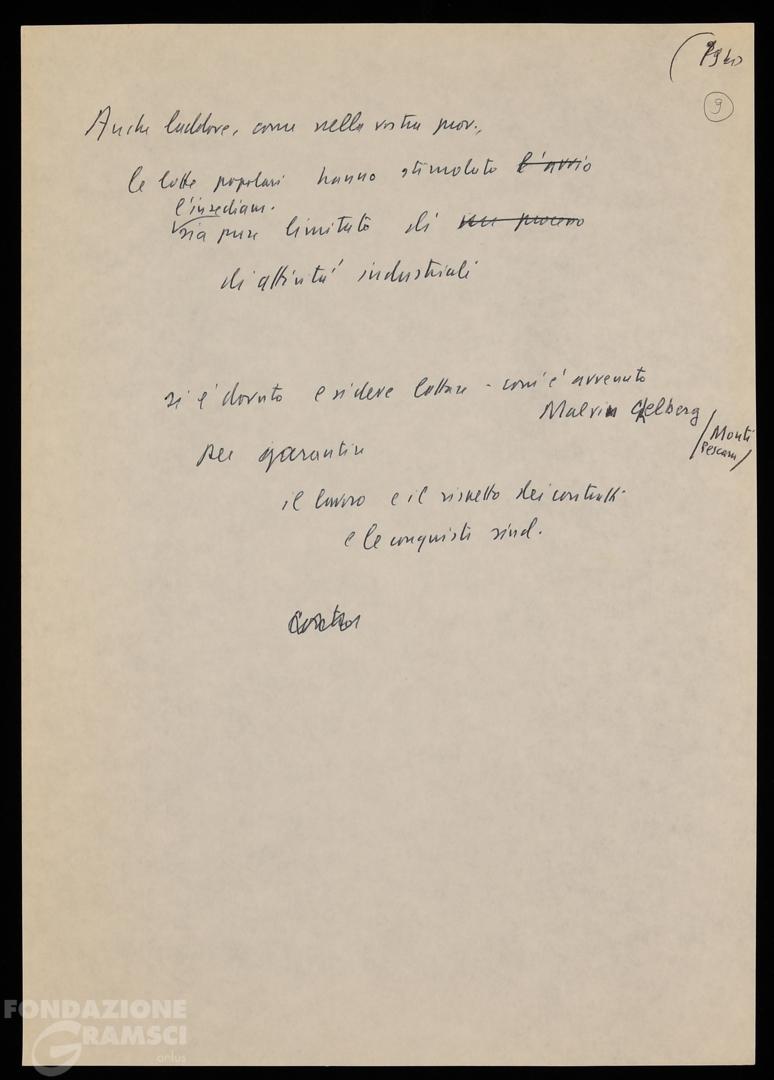 9
Anche laddove, come nella vostra prov.,
le lotte popolari hanno stimolato l'avvio
l'insediam.
sia pure limitato di un processo
di attività industriali
si è dovuto e si deve lottare - com'è avvenuto
Malvin Gelberg
/Monti
Pescara/
per garantire
il lavoro e il rispetto dei contratti
e le conquiste sind.
FONDAZIONE
GRAMSCI
onlus